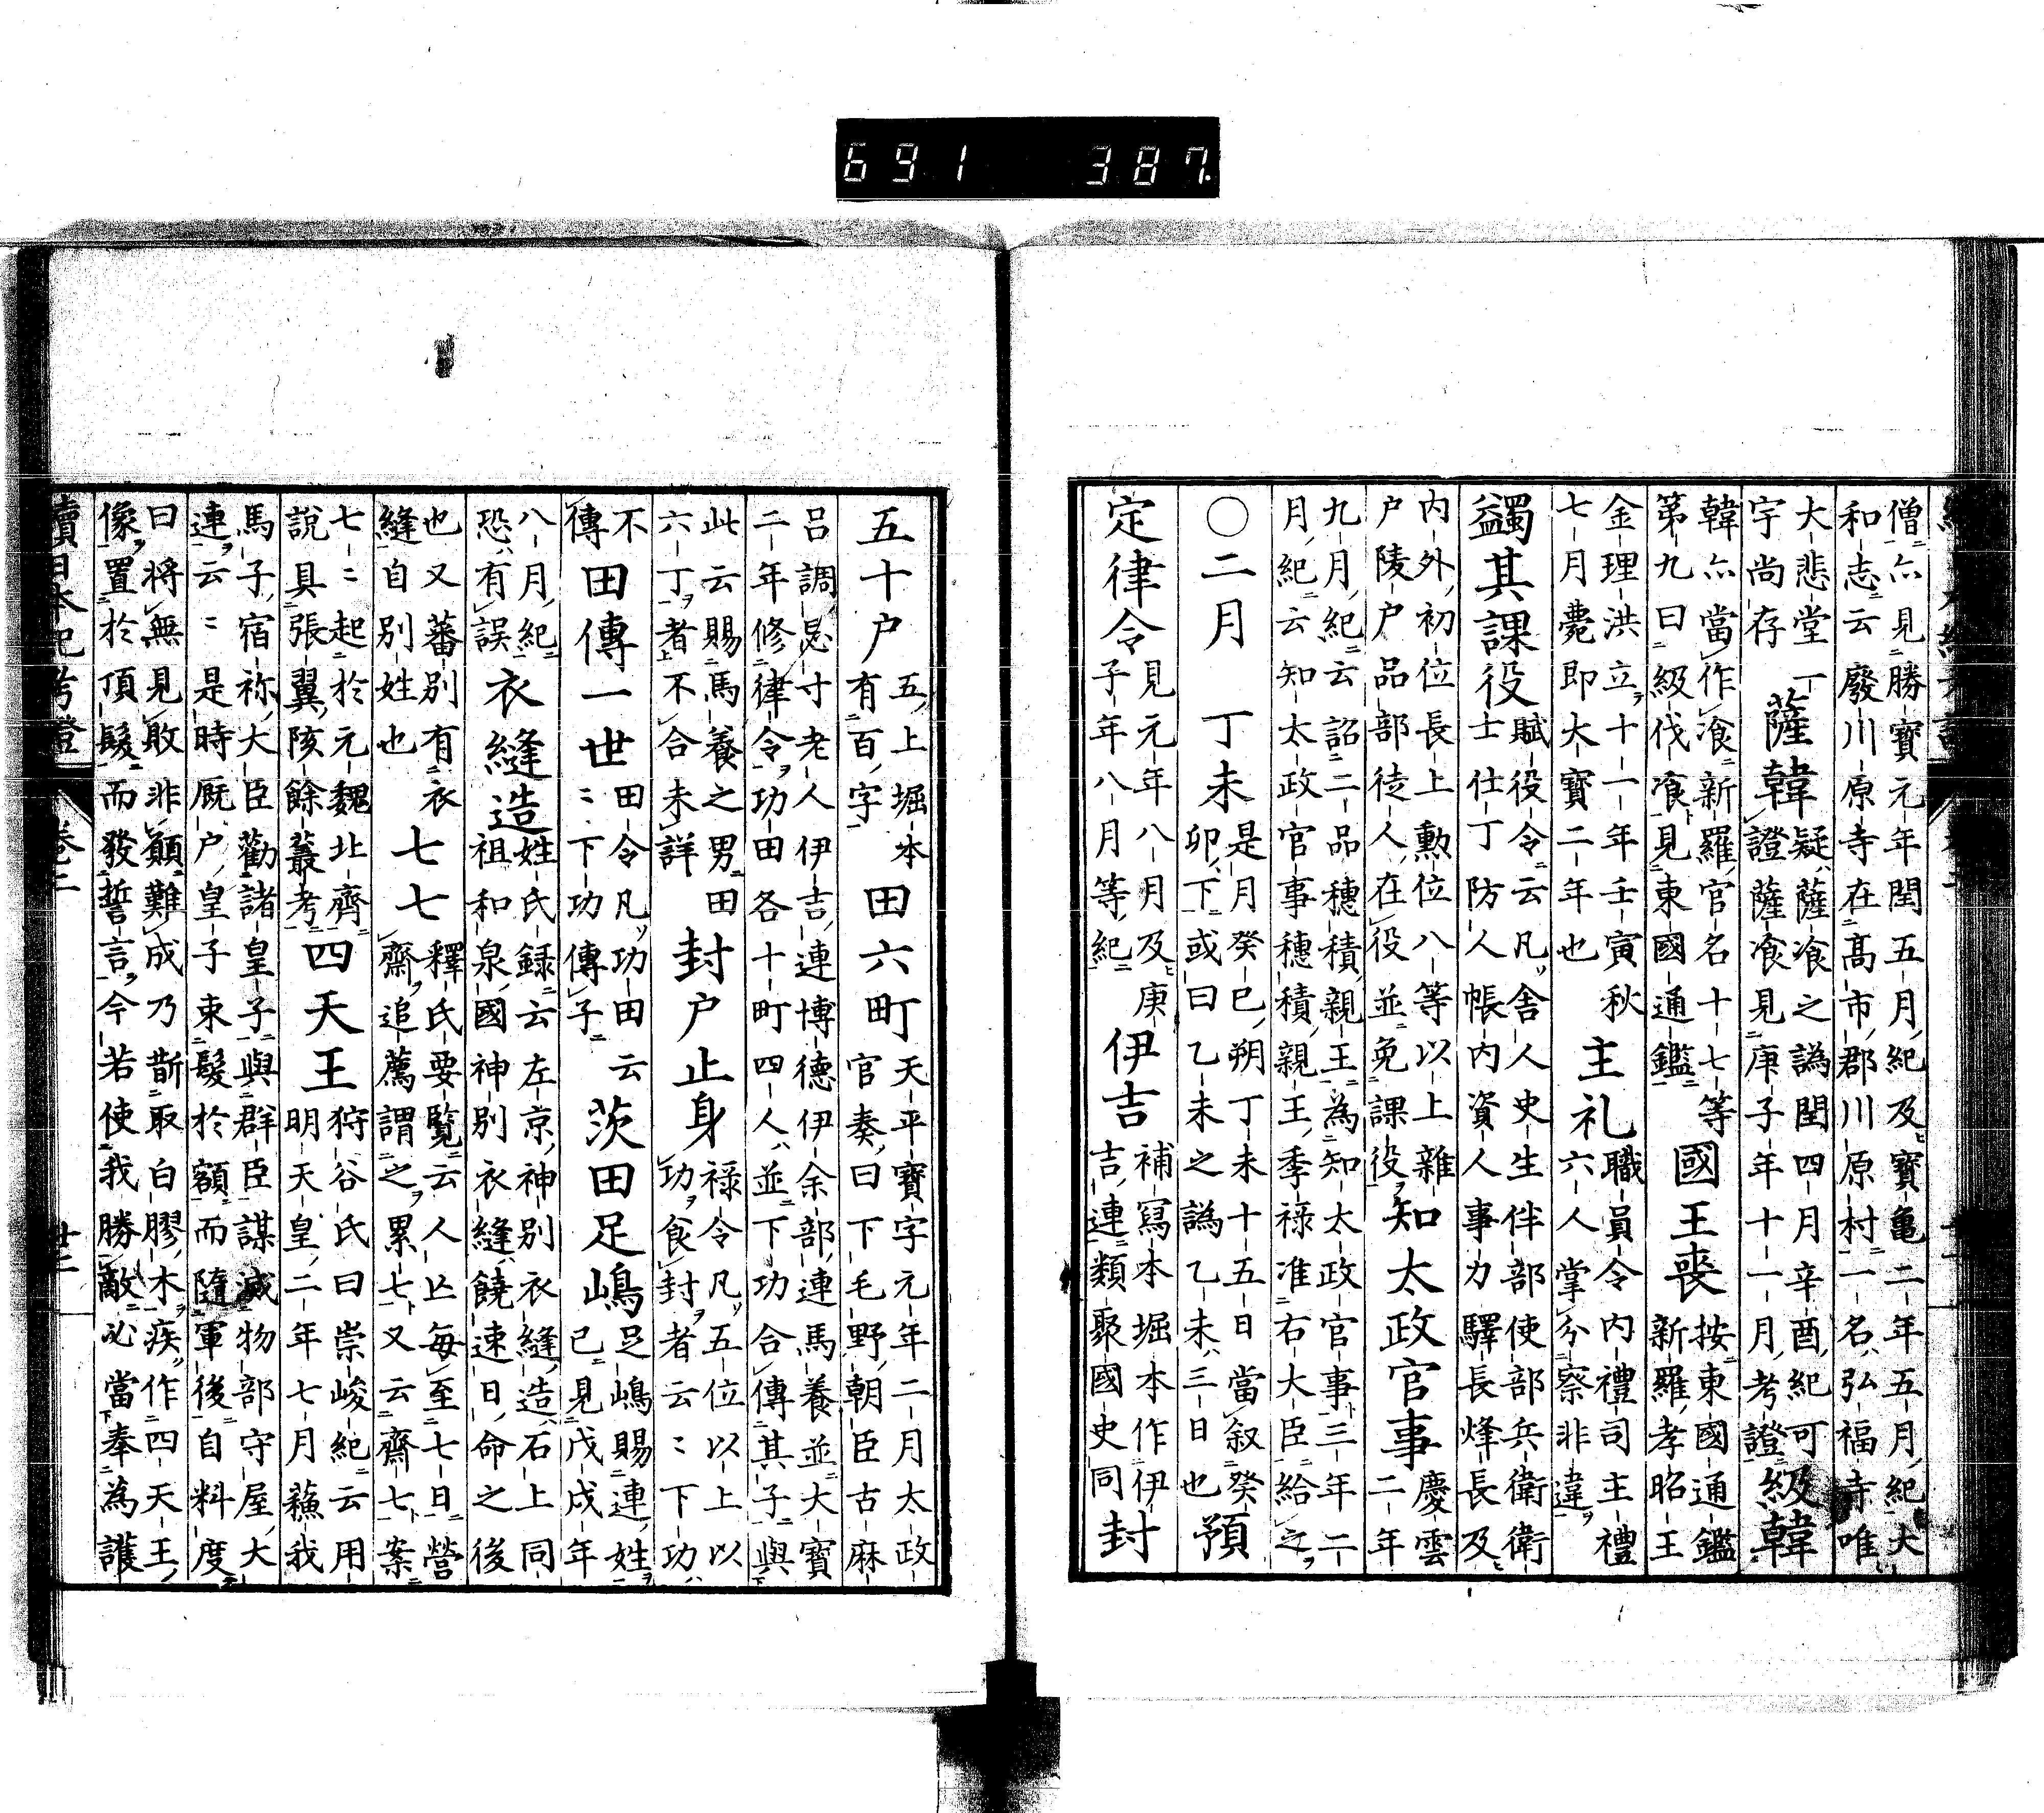 691 387
僧亦見勝寶元年閏五月紀及寶亀二年五月紀大
和志云廢川原寺在高市郡川原村一名弘福寺唯
大悲堂一
宇尚存
薩韓
疑薩飡之譌閏四月辛酉紀可
證薩飡見庚子年十一月考證
級韓
韓亦當作飡新羅官名十七等
第九曰級伐飡見東國通鑑
國王喪
按東國通鑑
新羅孝昭王
金理洪立十一年壬寅秋
七月薨即大寶二年也
主礼
職員令内禮司主禮
六人掌分察非違
蠲其課役
賦役令云凡舎人史生伴部使部兵衛衛
士仕丁防人帳内資人事力驛長烽長及
内外初位長上勲位八等以上雜
户陵户品部徒人在役並免課役
知太政官事
慶雲
二年
九月紀云詔二品穗積親王為知太政官事三年二
月紀云知太政官事穗積親王季祿准右大臣給之
○二月 丁未
是月癸巳朔丁未十五日當叙癸
卯下或曰乙未之譌乙未三日也
預
定律令
見元年八月及庚
子年八月等紀
伊吉
補寫本堀本作伊
吉連類聚國史同
封
五十户
五上堀本
有百字
田六町
天平寶字元年二月太政
官奏曰下毛野朝臣古麻
呂調忌寸老人伊吉連博德伊余部連馬養並大寶
二年修律令功田各十町四人並下功合傳其子與
此云賜馬養之男田
六丁者不合未詳
封户止身
祿令凡五位以上以
功食封者云〻下功
不
傳
田傳一世
田令凡功田云
〻下功傳子
茨田足嶋
足嶋賜連姓
已見戊戌年
八月紀
恐有誤
衣縫造
姓氏録云左京神别衣縫造石上同
祖和泉國神别衣縫饒速日命之後
也又蕃别有衣
縫自别姓也
七七
釋氏要覧云人亾每至七日營
齋追薦謂之累七又云齋七案
七〻起於元魏北齊
說具張翼陔餘叢考
四天王
狩谷氏曰崇峻紀云用
明天皇二年七月蘓我
馬子宿祢大臣勸諸皇子與群臣謀滅物部守屋大
連云〻是時厩户皇子束髮於額而隨軍後自料度
曰将無見敗非願難成乃斮取白膠木疾作四天王
像置於頂髮而發誓言今若使我勝敵必當奉為護
續日本紀考證 巻二 廿二